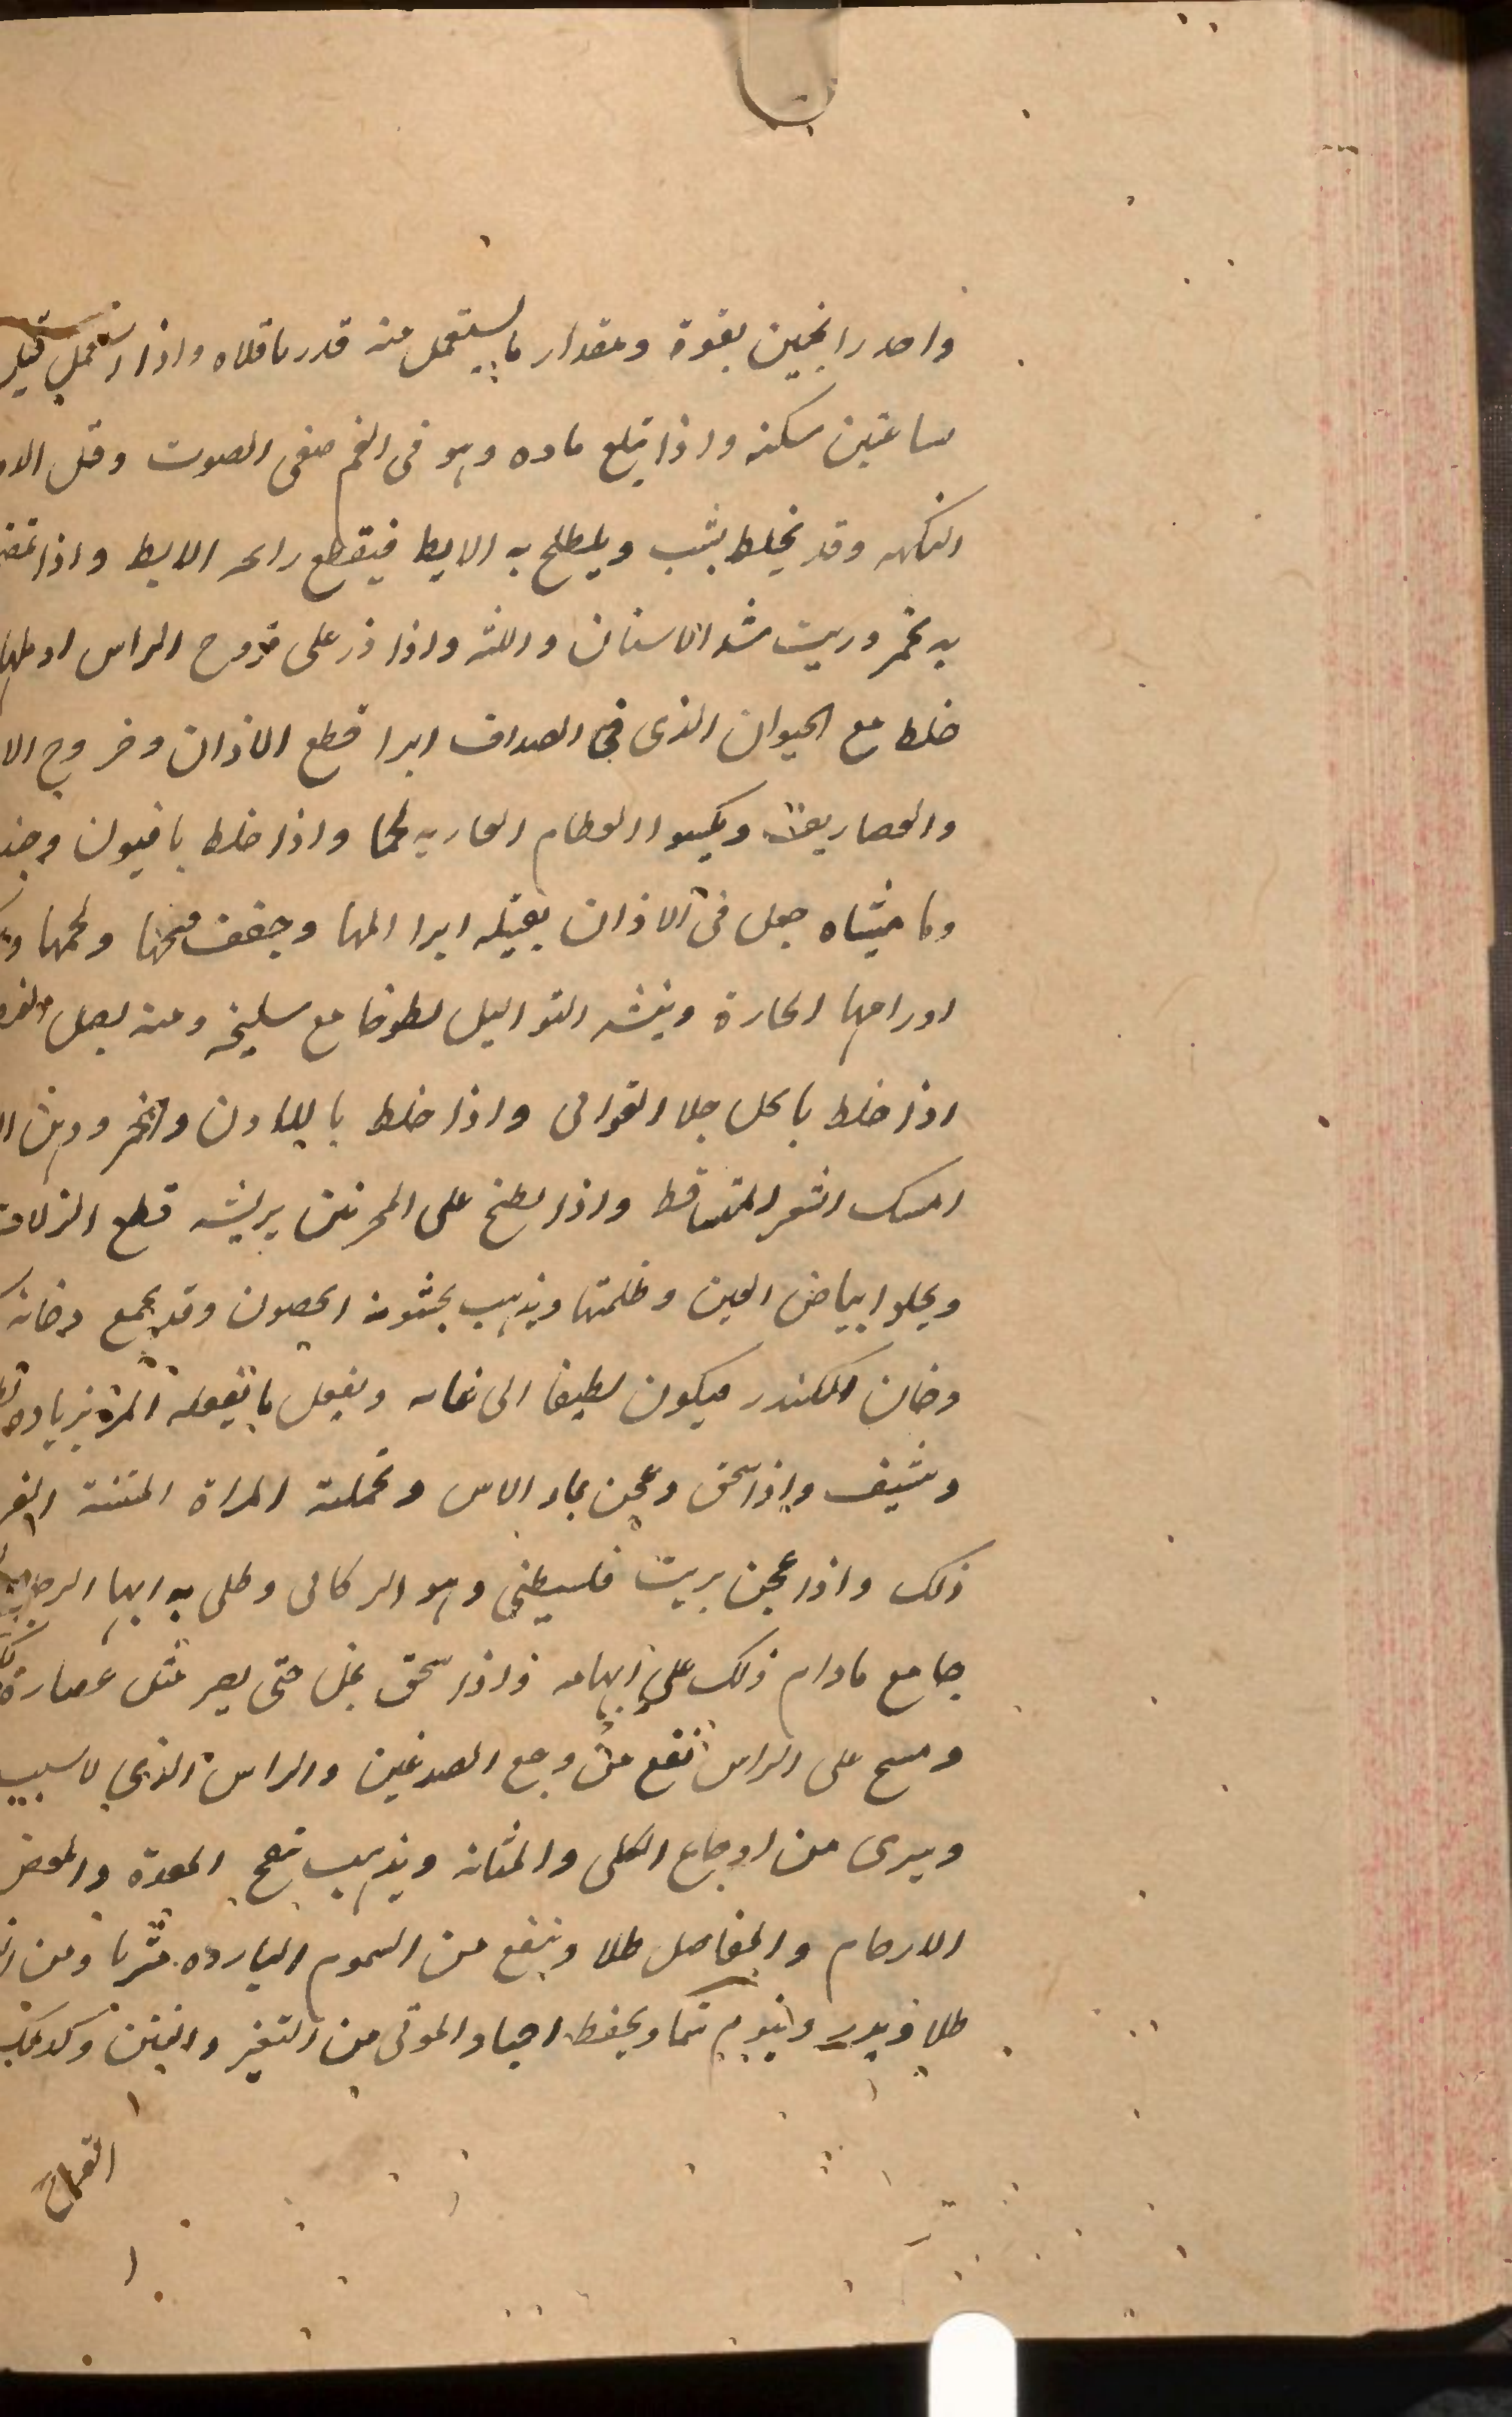 واحدر الجنين بقوة ومقدار ما يستعمل منه قدر باقلاه واذا استعمل قبل
ساعتين سكنه واذا بتلع ماوه وهو فى الفم صفى الصوت وقل
النكهه وقد يخلط بشب ويلطخ به الابط فيقطع رائحه الابط واذا
به بخمر وزيت شد الاسنان واللثه واذا ذر على قروح الراس ادملها
خلط مع الحيوان الذى فى الصداف ابرا قطع الاذان وخروج
والغضاريف ويكسوا العظام العاريه لحما واذا خلط بافيون وجند
وماميثاه جعل فى الاذان بفتيله ابرا المها وجفف قيحها ولحمها
اورامها الحارة وينشه الثواليل لطوخا مع سليخه ومنه بعسل
اذا خلط بالخل جلا القوابى واذا خلط باللادن والخمر ودهن
امسك الشعر المتساقط واذا لطخ على المنخرين بريشه قطع النزلات
ويجلوا بياض العين وظلمتها ويذهب بخشونه الجفون وقد يجمع دخانه
دخان الكندر فيكون لطيفا الى غايه ويفعل ما تفعله المر بزياده
وتنشيف واذا سحق وعجن بماء الاس وتحملته المراة المنتنة
ذلك واذا عجن بزيت فلسطينى وهو الركابى وطلى به ابها الرجل
جامع مادام ذلك على ابهامه واذا سحق بخل حتى يصر مثل عصارة
ومسح على الراس نفع من وجع الصدغين والراس الذى لا سبب
ويبرى من اوجاع الكلى والمثانه ويذهب نفخ المعدة والمغص
الارحام والمفاصل طلا وينفع من السموم البارده شربا ومن
طلا ويدر وينوم شما ويحفظ اجساد الموتى من التغير والنتن وكذلك